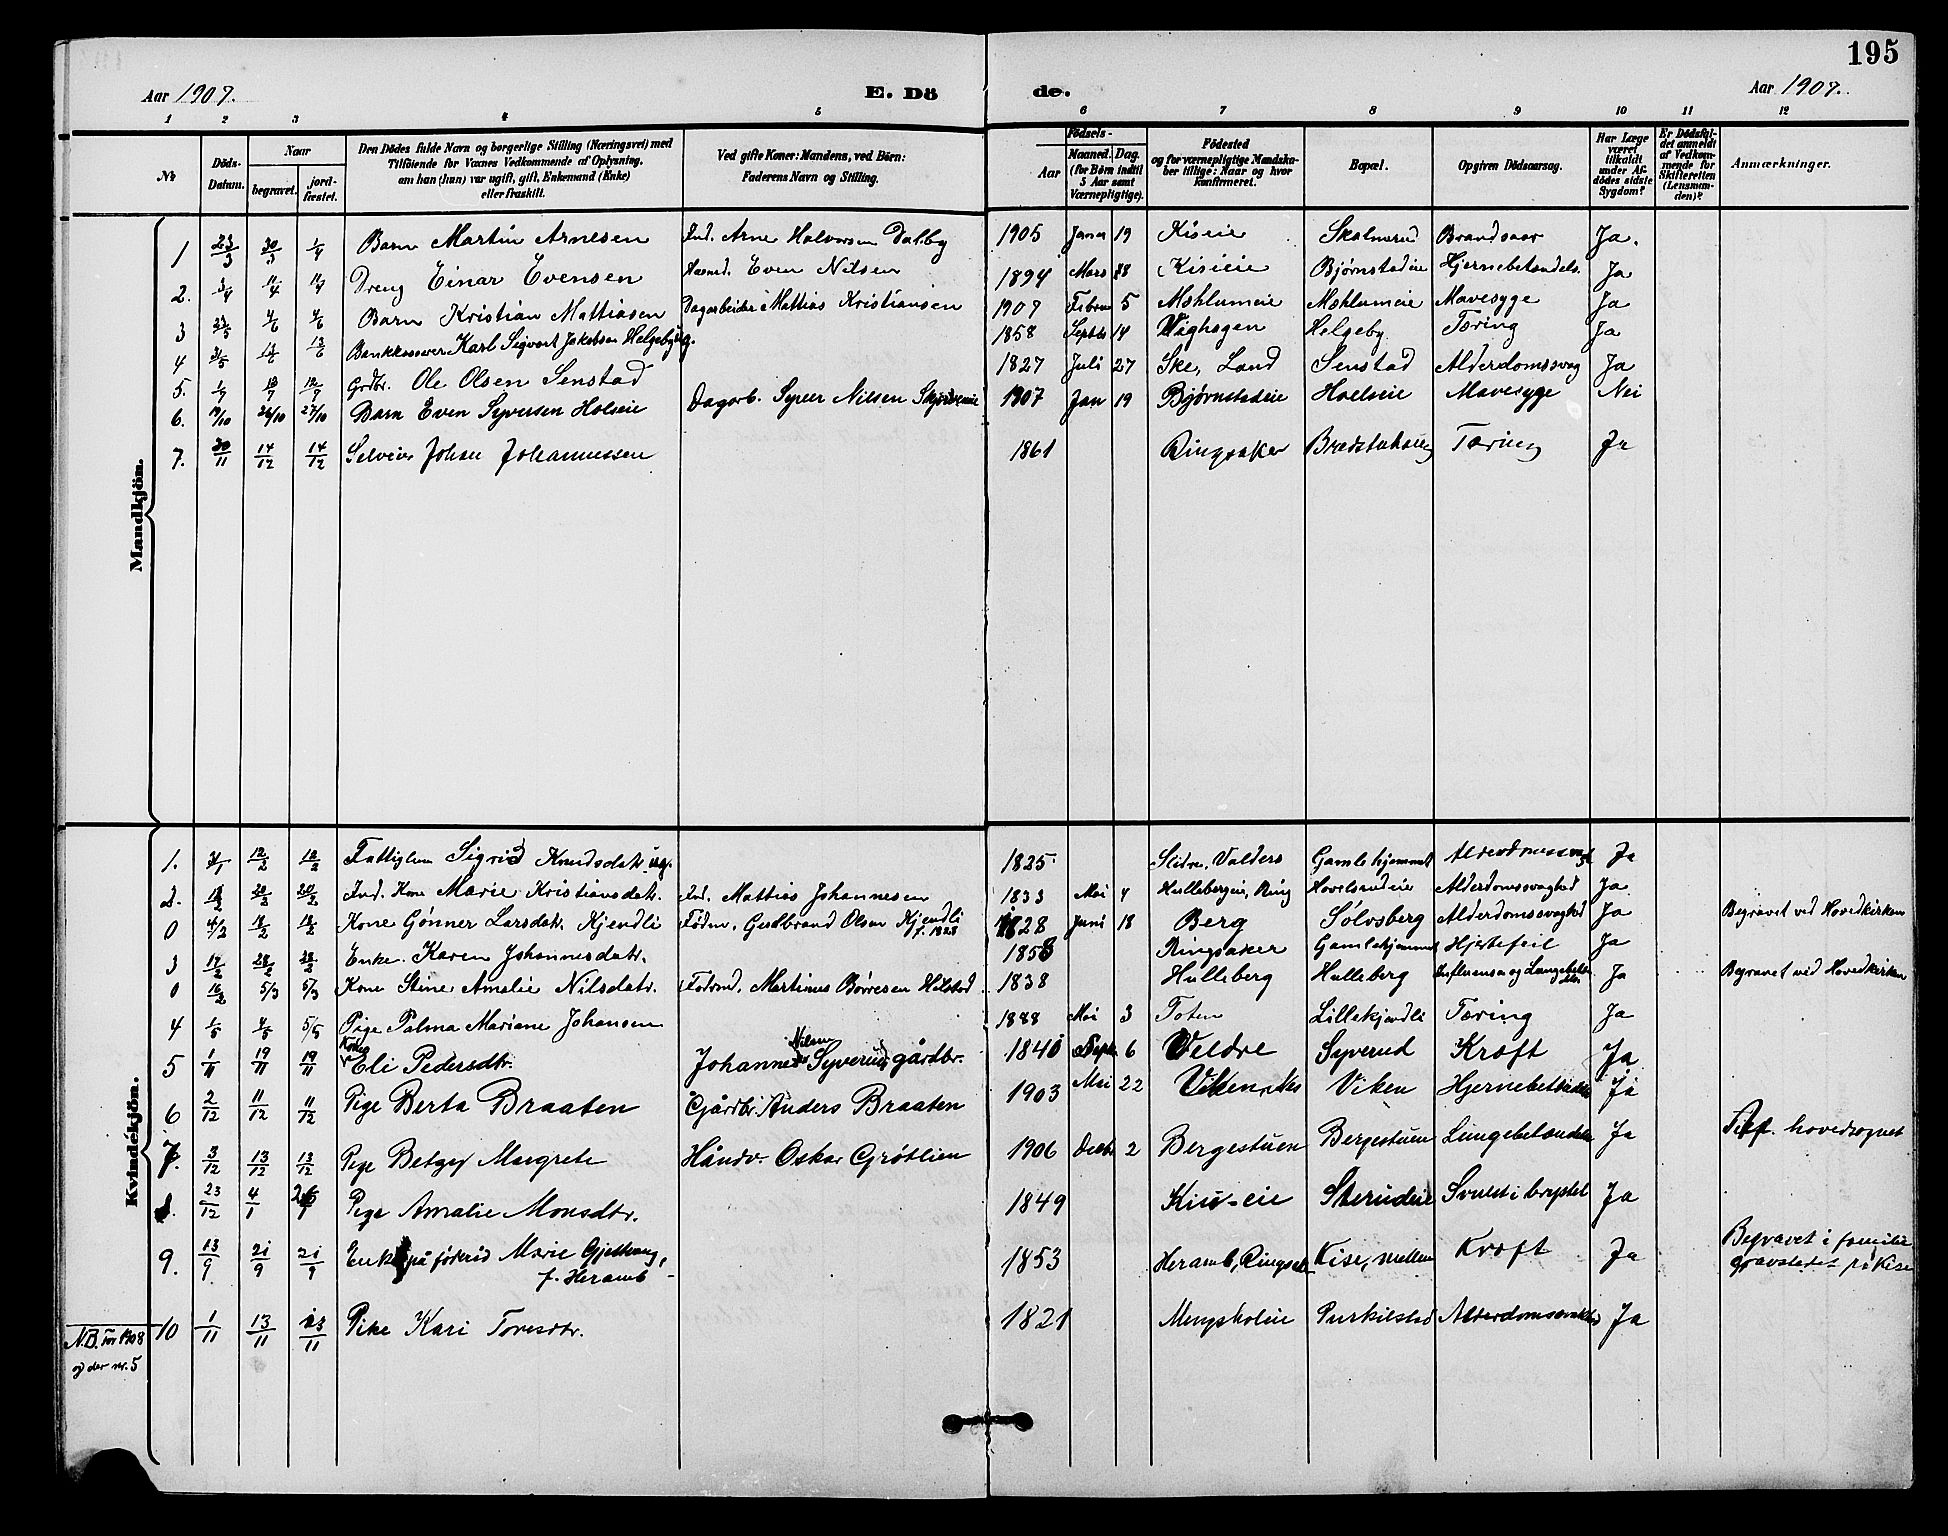 195
Aar 1907. E. Dö de. Aar 1907.
1 2 3 4 5 6 7 8 9 10 11 12
№
Döds-Datum.
Naar
begravet.
jord-fæstet.
Den Dödes fulde Navn og borgerlige Stilling (Næringsvei) med
Tilföiende for Voxnes Vedkommende af Oplysning,
om han (hun) var ugift, gift, Enkemand (Enke)
eller fraskilt.
Ved gifte Koner: Mandens, ved Börn:
Faderens Navn og Stilling.
Födsels-
Aar
Maaned. Dag.
(for Börn indtil
5 Aar samt
Værnepligtige).
Födested
og for værnepligtige Mandska-
ber tillige: Naar og hvor
konfirmeret.
Bopæl.
Opgiven Dödsaarsag.
Har Læge
været
tilkaldt
under Af-
dödes sidste
Sygdom?
Er Dödsfal-
det anmeldt
af Vedkom-
mende for
Skifteretten
(Lensman-
den)?
Anmærkninger.
Mandkjön.
1 23/3 30/3 1/4 Barn Martin Arnesen Ind. Arne Halvorsen Dalby 1905 Janu 19 Kiseie Skalmerud Brandsaar Ja.
2. 3/4 11/4 11/4 Dreng Einar Evensen Husmd. Even Nilsen 1894 Mars 28 Kiseie Bjørnstadeie Hjernebetændels. Ja
3 27/5 4/6 4/6 Barn Kristian Mattiasen Dagarbeider Mattias Kristiansen 1907 Febru 5 Mohlumeie Mohlumeie Mavesyge Ja
4 31/5 13/6 13/6 Bankkasserer Karl Sigvart Jakobsen Helgeby ug. 1858 Septbr 14 Vighagen Helgeby Tæring Ja
5. 1/7 12/7 12/7 Grdbr. Ole Olsen Senstad 1827 Juli 27 Ske, Land Senstad Alderdomssvag Ja
6. 19/10 26/10 27/10 Barn Even Syversen Holseie Dagarb. Syver Nilsen 1907 Jan 19 Bjørnstadeie Hoelseie Mavesyge Nei
7. 30/11 14/12 14/12 Selveier Johan Johannessen 1861 Ringsaker Tæring Ja
Kvindekjön.
1. 31/1 12/2 12/2 Fattiglem Sigrid Knudsdatr. ug. 1825 Slidre, Valders Gamlehjemmet Alderdomssvagh Ja
2. 20/2 20/2 Ind. Kone Marie Kristiansdatr. Ind. Mattias Johannesen 1833 Mai 4 Hullebergeie, Ring Hovelsrudeie Alderdomssvaghed Ja
0 4/2 12/2 12/2 Kone Gønner Larsdatr. Kjendli Føderm. Guldbrand Olsen Kjendli f. 1828 1828 Juni 18 Berg Sølvsberg Alderdomssvaghed Ja Begravet ved Hovedkirken
3 17/2 28/2 28/2 Enke. Karen Johannesdatr. 1858 Ringsaker Gamlehjemmet Hjertefeil Ja
0 16/2 5/3 5/3 Kone Stine Amalie Nilsdatr. Føderd. Martinus Børresen Hilstad 1838 Hulleberg Hulleberg Influensa og Lungebetæn Ja Begravet ved Hovedkirken
4 1/5 4/5 5/5 Pige Palma Mariane Johansen 1888 Mai 3 Toten Lillekjendli Tæring Ja
5 1/11 19/11 19/11 Kone Eli Pedersdtr. Johannes Nilsen Syverud, gårdbr. 1840 Septbr 6 Veldre Syverud Kræft Ja
6 2/12 11/12 11/12 Pige Berta Braaten Gårdbr. Anders Braaten 1903 Mai 22 Viken, Nes Viken Hjernebetændelse Ja
7. 3/12 13/12 13/12 Pige Betgy Margrete Håndv. Oskar Grøtlien 1906 Decbr 2 Bergestuen Bergestuen Lungebetændelse Ja hovedsognet
8. 23/12 4/1 Pige Amalie Monsdtr. 1849 Kise-eie Sterudeie Svulst i brystet Ja
9. 13/9 21/9 21/9 Enke på føderåd Marie Gjettvang, f. Heramb 1853 Heramb, Ringsak Kise, mellem Kræft Ja Begravet i familie gravstedet på Kise
10 1/11 13/11 13/11 Pike Kari Toresdtr. 1821 Mengsholeie Purkilstad Alderdomssvakhed Ja
N.B. For 1908
og der nr. 5